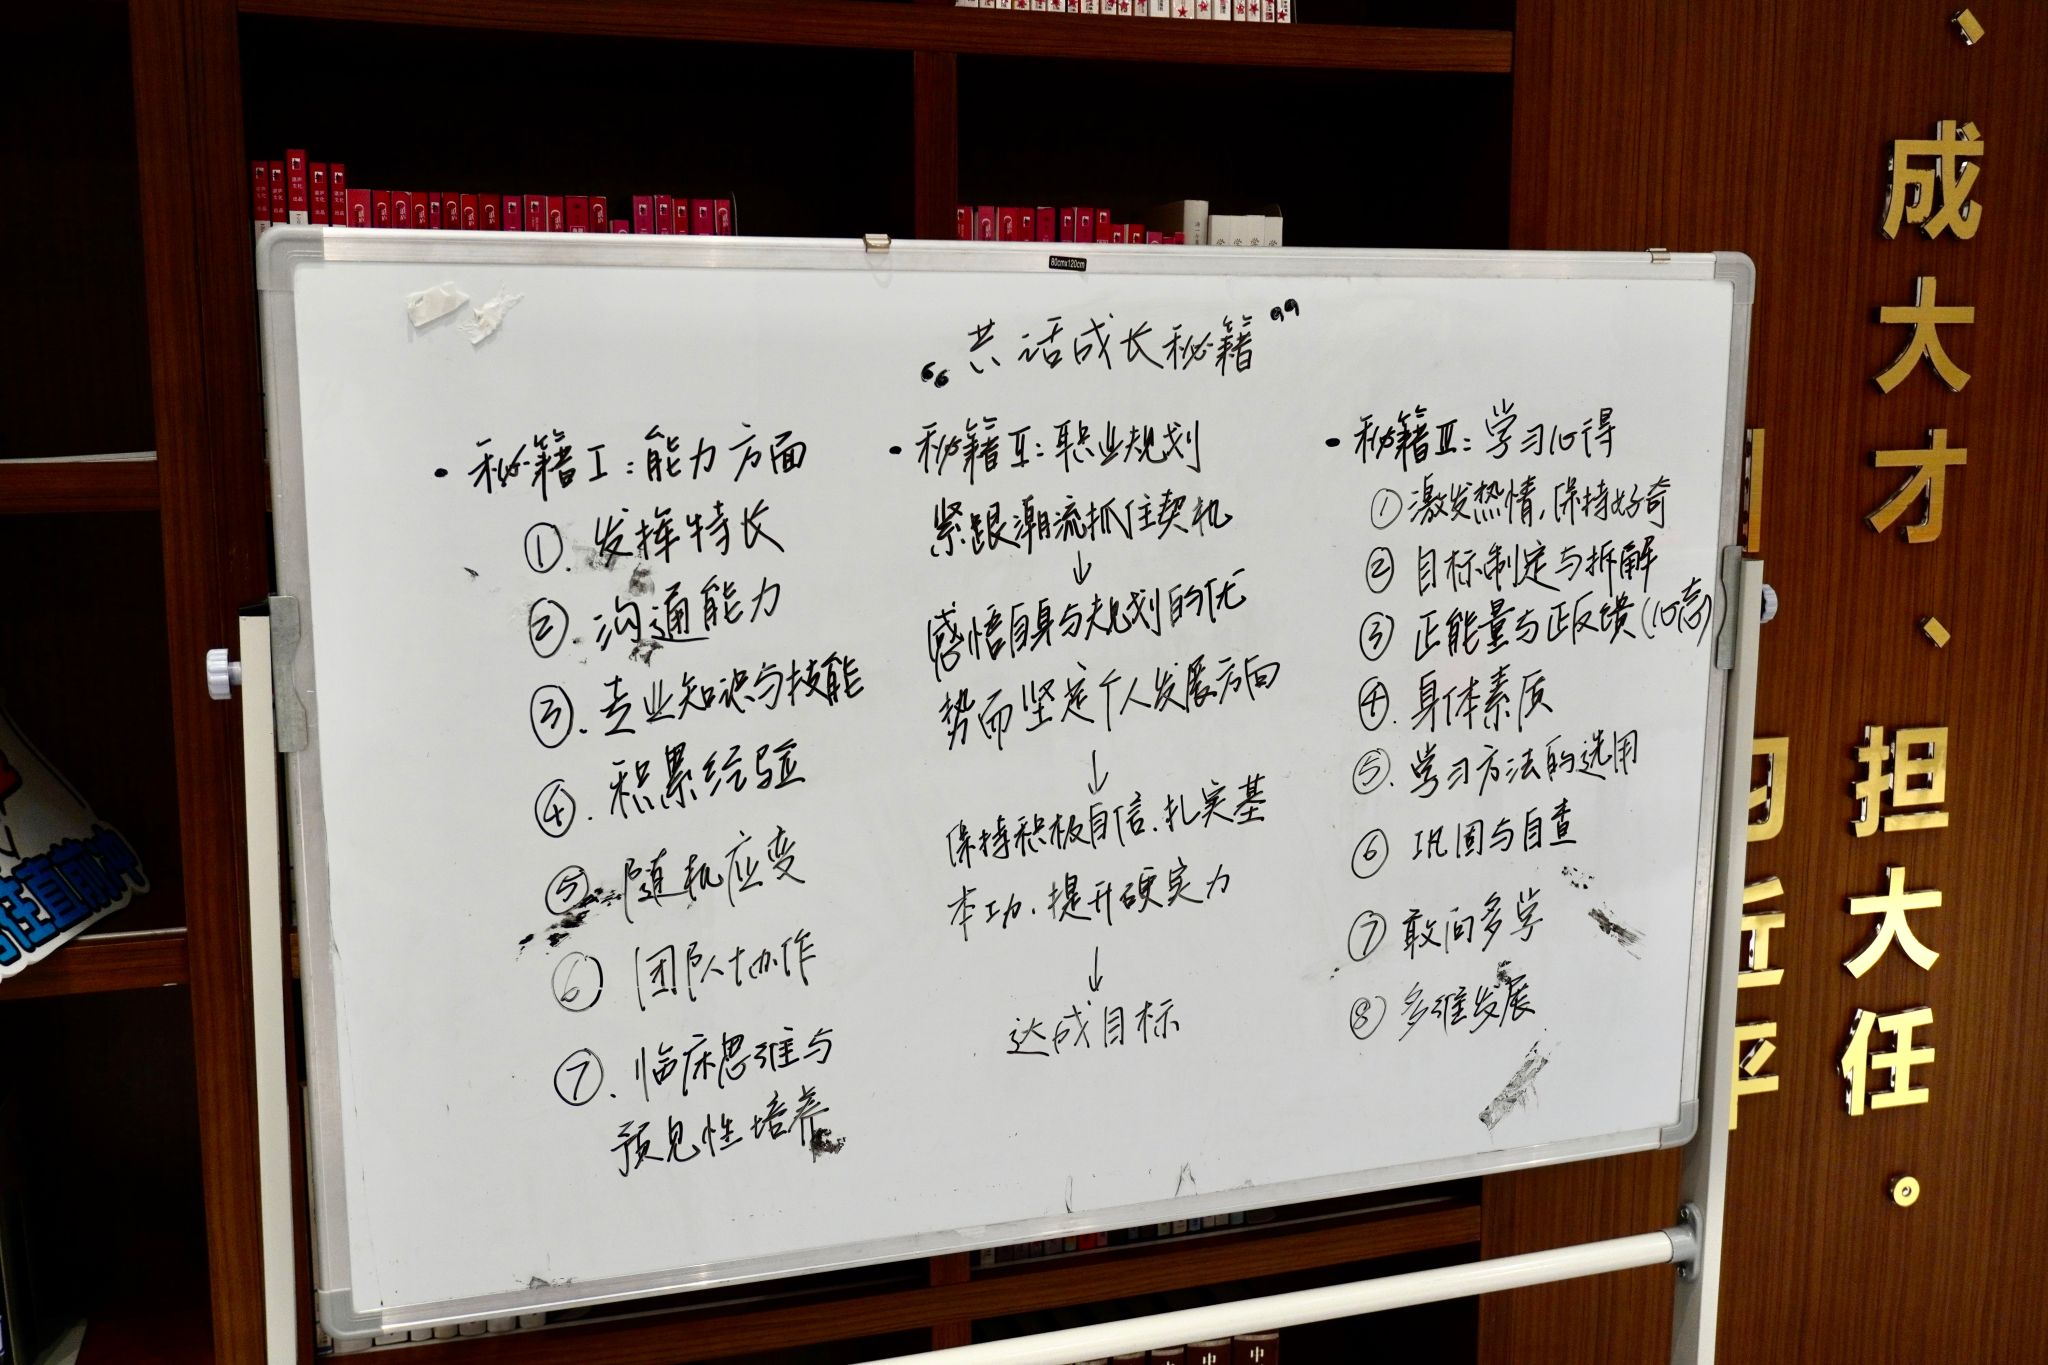 “共话成长秘籍”
• 秘籍Ⅰ:能力方面
①. 发挥特长
②. 沟通能力
③. 专业知识与技能
④. 积累经验
⑤ 随机应变
⑥ 团队协作
⑦. 临床思维与
预见性培养
• 秘籍Ⅱ:职业规划
紧跟潮流抓住契机
↓
感悟自身与规划的优
势而坚定个人发展方向
↓
保持积极自信、扎实基
本功、提升硬实力
↓
达成目标
• 秘籍Ⅲ:学习心得
① 激发热情,保持好奇
② 目标制定与拆解
③ 正能量与正反馈(心态)
④. 身体素质
⑤. 学习方法的选用
⑥ 巩固与自查
⑦ 敢问多学
⑧ 多维发展
80cmx120cm
、成大才、担大任。
习近平
在直前冲